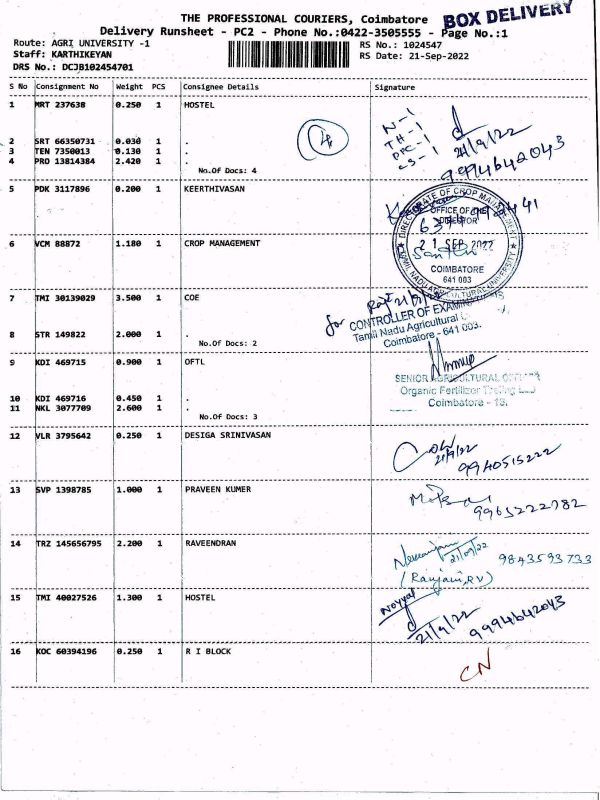 THE PROFESSIONAL COURIERS, Coimbatore
BOX DELIVERY
Delivery Runsheet - PC2 - Phone No.:0422-3505555 - Page No.:1
Route: AGRI UNIVERSITY -1
RS No.: 1024547
Staff: KARTHIKEYAN
RS Date: 21-Sep-2022
DRS No.: DCJB102454701
S No Consignment No Weight PCS Consignee Details Signature
1 MRT 237638 0.250 1 HOSTEL
N-1
TH-1
DPC-1
CS-1
21/9/22
9994642043
4
2 SRT 66350731 0.030 1 .
3 TEN 7350013 0.130 1 .
4 PRO 13814384 2.420 1 .
No.Of Docs: 4
5 PDK 3117896 0.200 1 KEERTHIVASAN
DIRECTORATE OF CROP MANAGEMENT
OFFICE OF THE
DIRECTOR
21 SEP 2022
COIMBATORE
641 003
TAMIL NADU AGRICULTURAL UNIVERSITY
6 VCM 88872 1.180 1 CROP MANAGEMENT
7 TMI 30139029 3.500 1 COE
for
CONTROLLER OF
Tamil Nadu Agricultural
Coimbatore - 641 003.
8 STR 149822 2.000 1 .
No.Of Docs: 2
9 KDI 469715 0.900 1 OFTL
SENIOR AGRICULTURAL
Organic Fertilizer Testing
Coimbatore - 
10 KDI 469716 0.450 1 .
11 NKL 3077709 2.600 1 .
No.Of Docs: 3
12 VLR 3795642 0.250 1 DESIGA SRINIVASAN
21/9/22
9940515222
13 SVP 1398785 1.000 1 PRAVEEN KUMER
9965222782
14 TRZ 145656795 2.200 1 RAVEENDRAN
21/09/22
9843593733
(Ranjani, RV)
15 TMI 40027526 1.300 1 HOSTEL
Noyyal
21/9/22
9994642043
16 KOC 60394196 0.250 1 R I BLOCK
CN